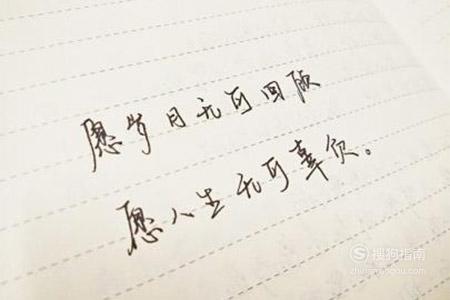 愿岁月无可回顾
愿人生无可辜负。
搜狗指南
zhinan.sogou.com